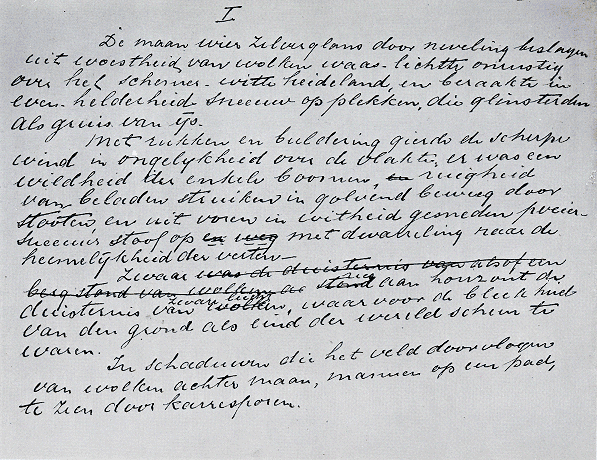 I
De maan wier zilverglans door neveling beslagen
uit woestheid van wolken waas-lichtte onrustig
over het schemer-witte heideland, en beraakte in
even-helderheid sneeuw op plekken, die glinsterden
als gruis van ijs.
Met rukken en buldering gierde de scherpe
wind in ongelykheid over de vlakte, er was een
wildheid in enkele boomen, en ruigheid
van beladen struiken in golvend beweeg door
stooten, en uit voren in witheid gesneden poeier-
sneeuw stoof op en weg met dwarreling naar de
heimelykheid der verten.
Zwaar was de duisternis van alsof een
berg stond van wolken de stond aan horizont de
duisternis van zwaar licht wolken, waarvoor de bleekheid
van den grond als eind der wereld scheen te
waren.
In schaduwen die het veld doorvlogen
van wolken achter maan, mannen op een pad,
te zien door karresporen.